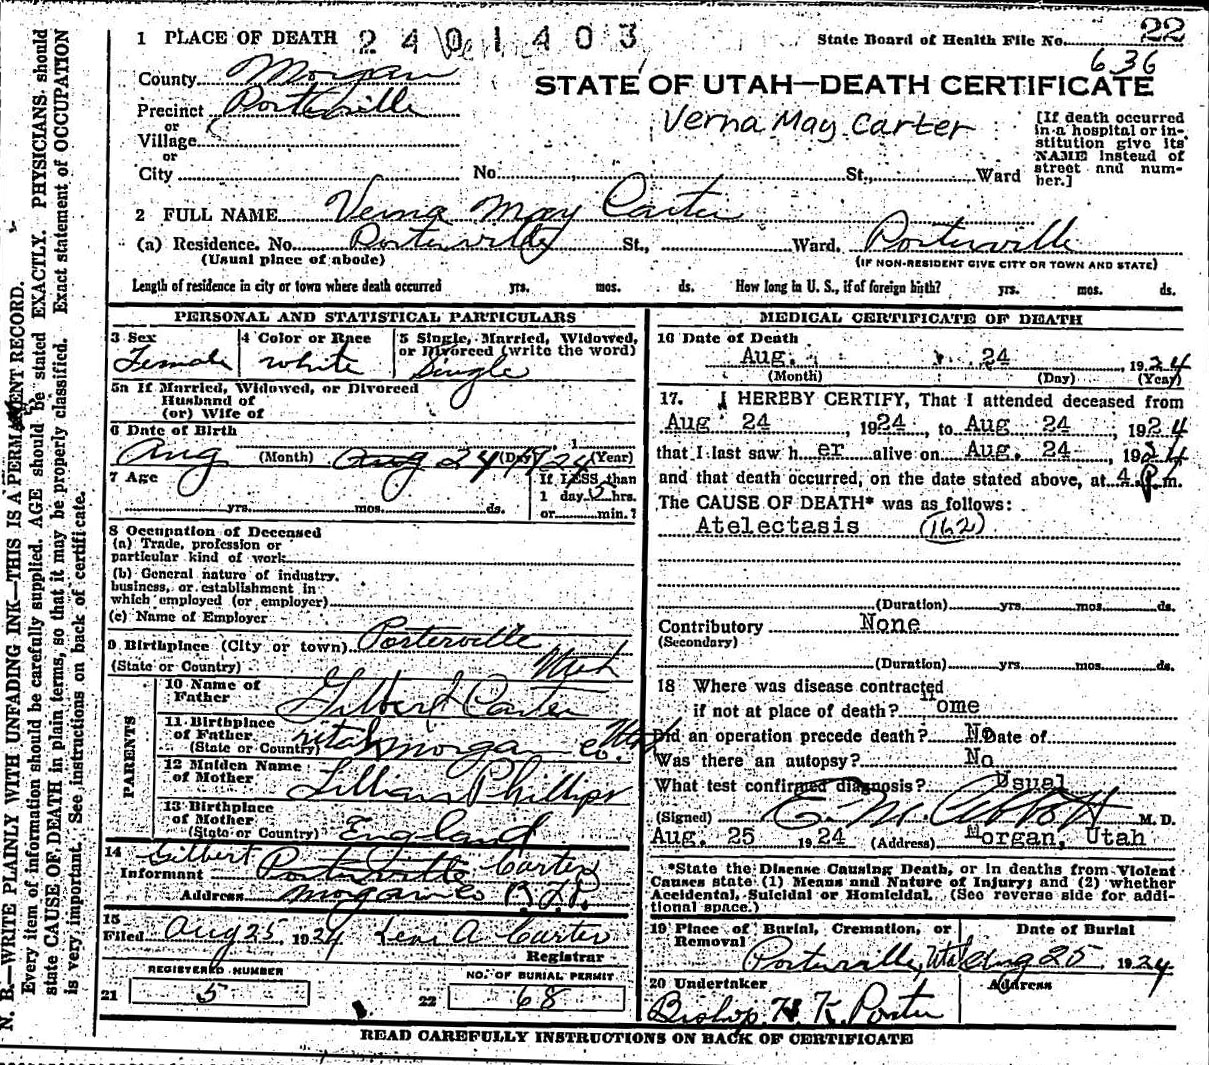 22
1 PLACE OF DEATH 2401403
State Board of Health File No.
636
County Morgan
STATE OF UTAH—DEATH CERTIFICATE
Precinct Porterville
or
Village
or
City No. St., Ward
Verna May Carter
[If death occurred
in a hospital or in-
stitution give its
NAME instead of
street and num-
ber.]
2 FULL NAME Verna May Carter
(a) Residence. No. Porterville St., Ward. Porterville
(Usual place of abode) (IF NON-RESIDENT GIVE CITY OR TOWN AND STATE)
Length of residence in city or town where death occurred yrs. mos. ds. How long in U. S., if of foreign birth? yrs. mos. ds.
PERSONAL AND STATISTICAL PARTICULARS
3 Sex
Female
4 Color or Race
White
5 Single, Married, Widowed,
or Divorced (write the word)
Single
5a If Married, Widowed, or Divorced
Husband of
(or) Wife of
6 Date of Birth
Aug (Month) Aug 24 (Day) 1924 (Year)
7 Age
yrs. mos. ds.
If LESS than
1 day 5 hrs.
or min.?
8 Occupation of Deceased
(a) Trade, profession or
particular kind of work
(b) General nature of industry,
business, or establishment in
which employed (or employer)
(c) Name of Employer
9 Birthplace (City or town) Porterville
(State or Country) Utah
PARENTS
10 Name of
Father Gilbert Carter
11 Birthplace
of Father
(State or Country) Utah Morgan Co. Utah
12 Maiden Name
of Mother Lillian Phillips
13 Birthplace
of Mother
(State or Country) England
14
Informant Gilbert Carter
Porterville
Address Morgan Co R.F.D.
15
Filed Aug 25, 1924 Carter
Registrar
REGISTERED NUMBER
21 5
NO. OF BURIAL PERMIT
22 68
MEDICAL CERTIFICATE OF DEATH
16 Date of Death
Aug. 24, 1924
(Month) (Day) (Year)
17. I HEREBY CERTIFY, That I attended deceased from
Aug 24, 1924, to Aug 24, 1924
that I last saw her alive on Aug. 24, 1924
and that death occurred, on the date stated above, at 4 P. m.
The CAUSE OF DEATH* was as follows:
Atelectasis (162)
(Duration) yrs. mos. ds.
Contributory None
(Secondary)
(Duration) yrs. mos. ds.
18 Where was disease contracted
if not at place of death? Home
Did an operation precede death? No Date of
Was there an autopsy? No
What test confirmed diagnosis? Usual
(Signed) E. M. Abbott M. D.
Aug. 25 1924 (Address) Morgan, Utah
*State the Disease Causing Death, or in deaths from Violent
Causes state (1) Means and Nature of Injury; and (2) whether
Accidental, Suicidal or Homicidal. (See reverse side for addi-
tional space.)
19 Place of Burial, Cremation, or
Removal
Porterville, Utah
Date of Burial
Aug 25, 1924
20 Undertaker
Bishop H. K. Porter
Address
READ CAREFULLY INSTRUCTIONS ON BACK OF CERTIFICATE
N. B.—WRITE PLAINLY WITH UNFADING INK—THIS IS A PERMANENT RECORD.
Every item of information should be carefully supplied. AGE should be stated EXACTLY. PHYSICIANS should
state CAUSE OF DEATH in plain terms, so that it may be properly classified. Exact statement of OCCUPATION
is very important. See instructions on back of certificate.